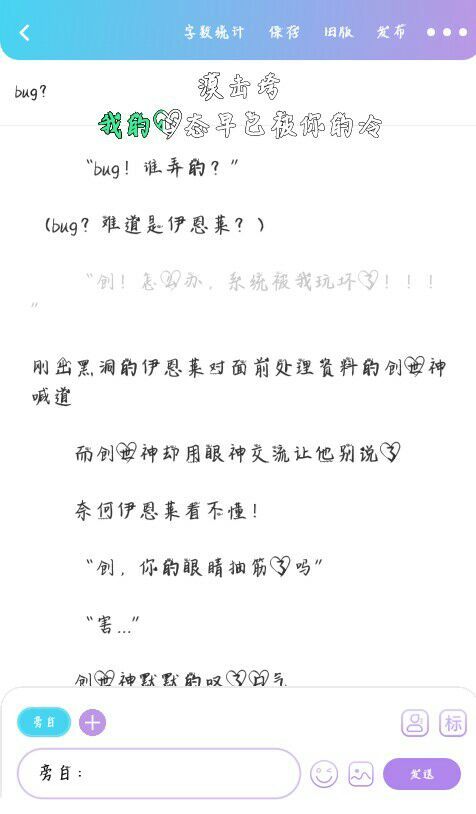 字数统计 保存 旧版 发布
bug?
漠击垮
我的心态早已被你的冷
“bug！谁弄的？”
(bug? 难道是伊恩莱？)
“创！怎么办，系统被我玩坏了！！！
”
刚出黑洞的伊恩莱对面前处理资料的创世神
喊道
而创世神却用眼神交流让他别说了
奈何伊恩莱看不懂！
“创，你的眼睛抽筋了吗”
“害...”
创世神默默的叹了口气
旁白
标
旁白：
发送